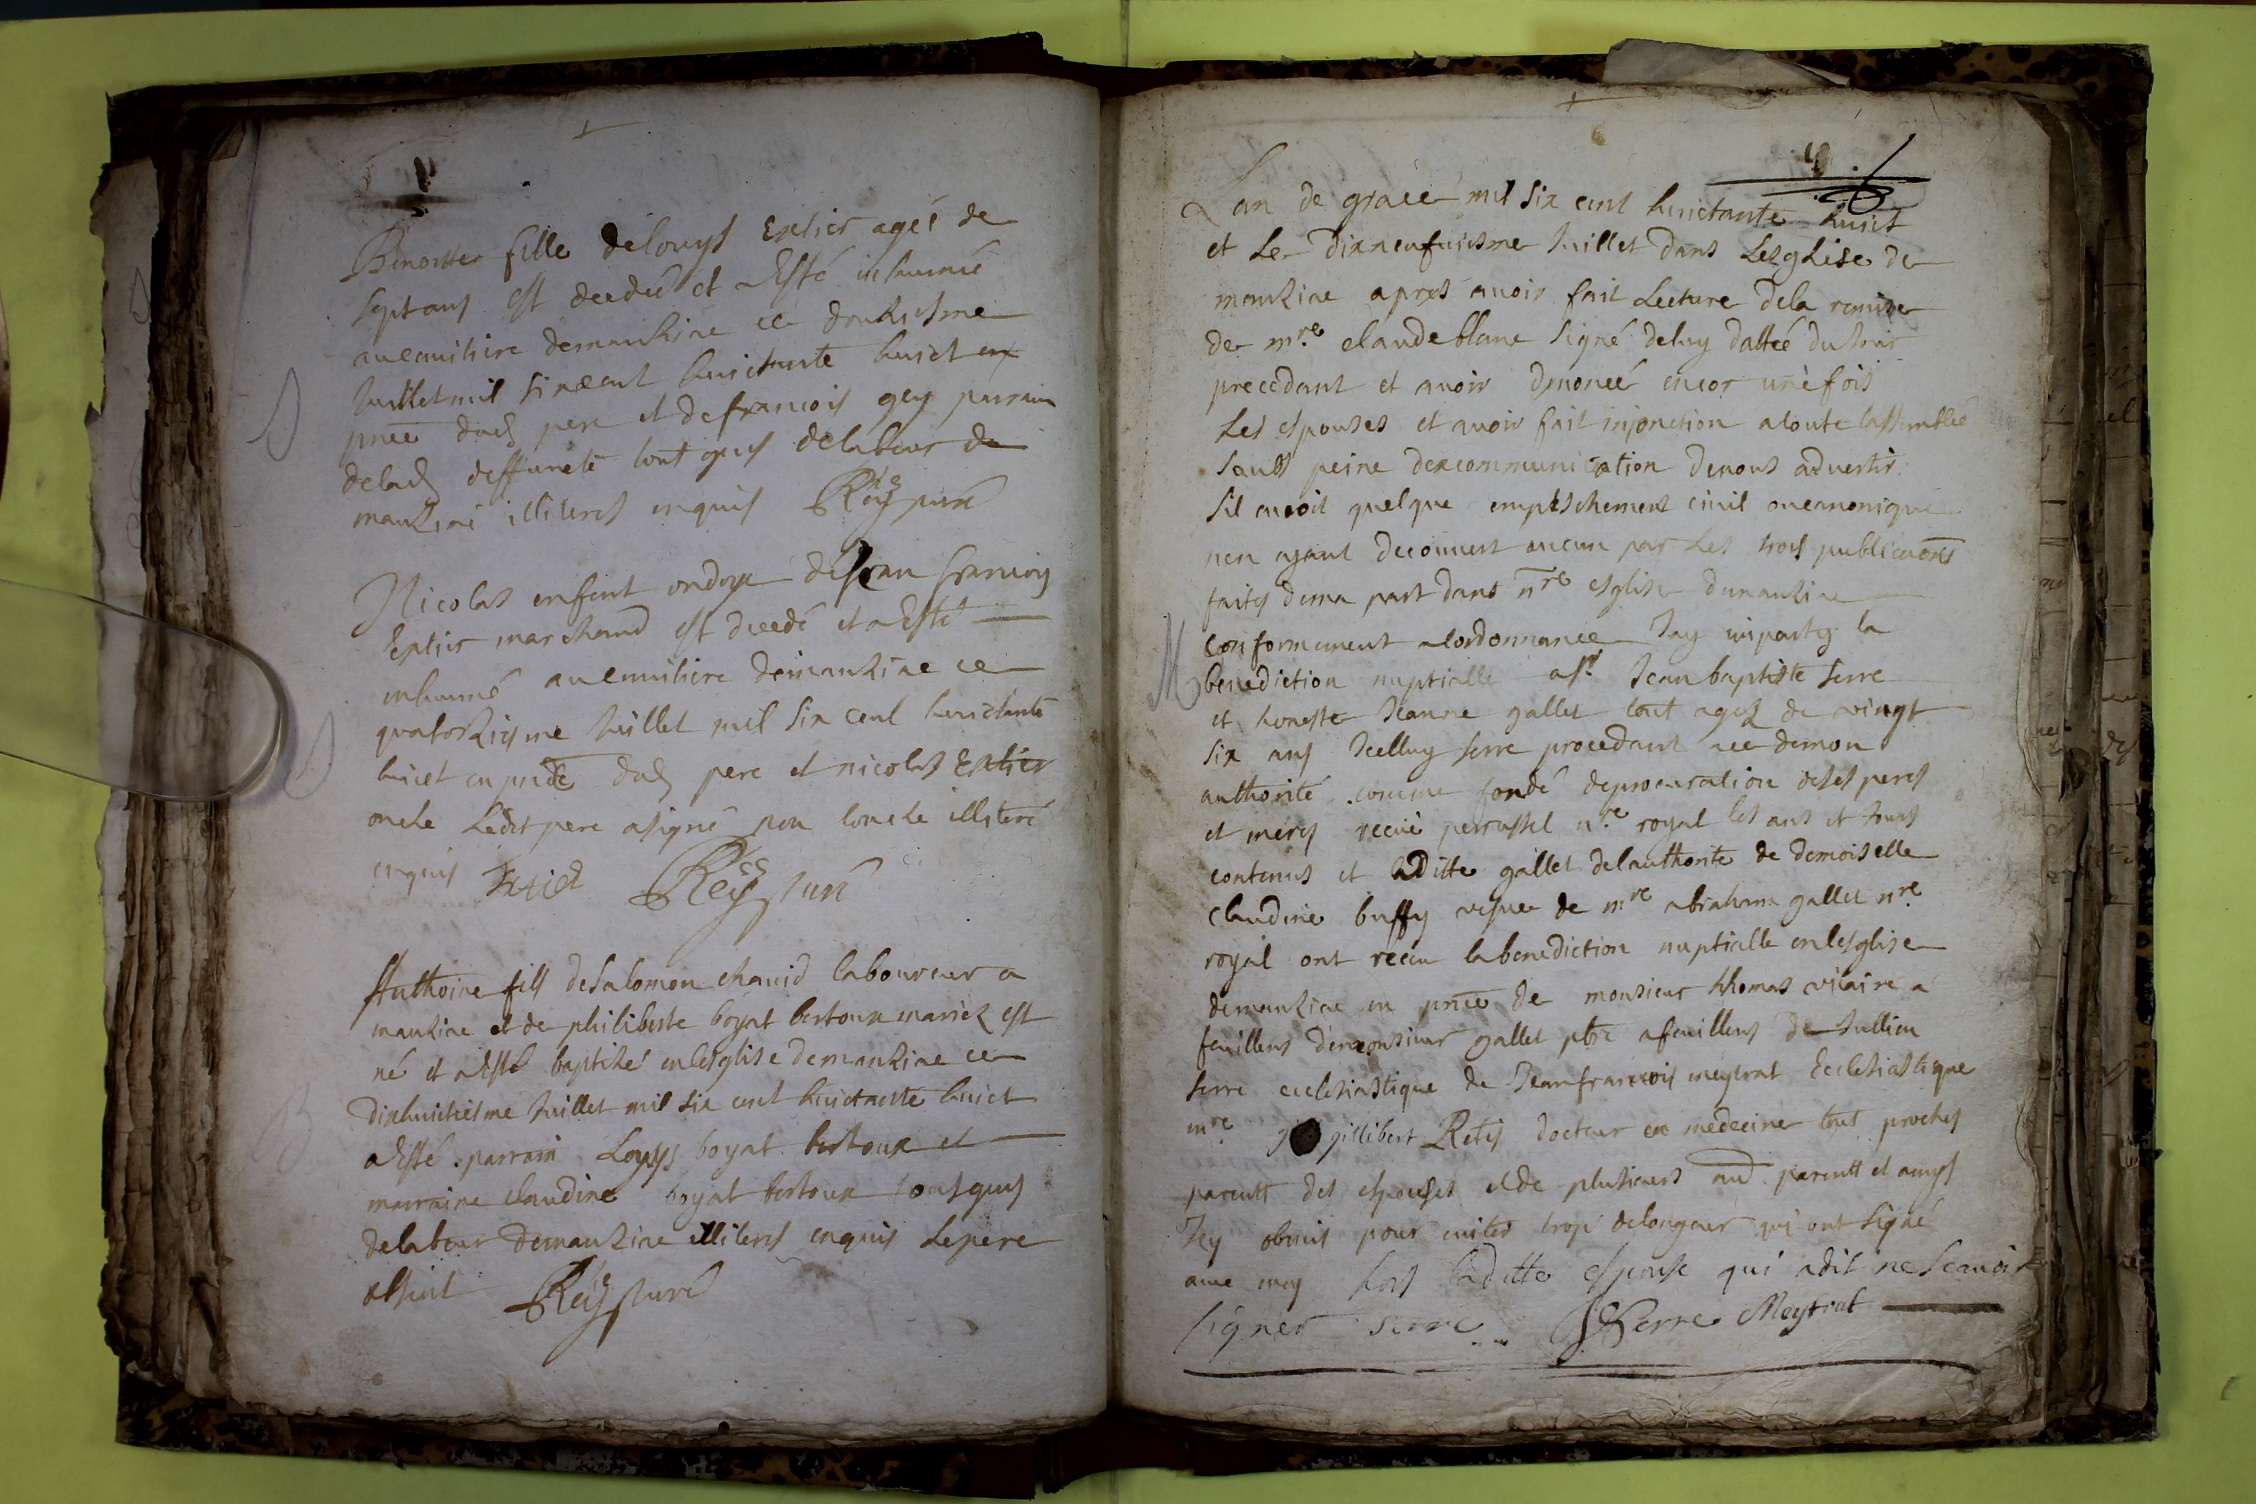 Benoitte fille de louys Extier agée de
sept ans est decedée et a Esté inhumée
au cemitiere demanziac ce douziesme
Juillet mil six cent huictante huict en
pnce dud pere et de francois gey parrain
de lad deffuncte tout gens de labeur de
manziac illiteres enquis Rey curé
Nicolas enfent ondoye de Jean francois
Extier marchand est decedé et a Esté
inhumé au cemitiere demanziac ce
quatorziesme Juillet mil six cent huictante
huict en pnce dud pere et nicolas Extier
oncle Ledit pere a signé non loncle illiteré
enquis Extier Rey curé
Anthoine fils de salomon chanid laboureur a
manziac et de philiberte boyat bertoux mariez est
né et a Esté baptizé en lesglise demanziac ce
dixhuictiesme Juillet mil six cent huictante huict
a Esté parrain Louys boyat bertoux et
marraine claudine boyat bertoux tous gens
delabeur demanziac illiteres enquis Lepere
absent Rey curé
Lan de grace mil six cent huictante huict
et Le dixneufuiesme Juillet dans Lesglise de
manziac apres auoir fait Lecture dela remise
de mre claude blanc signé deluy dattée du Jour
precedant et auoir denoncé encor une fois
Les espouses et auoir fait injonction atoute lassemblée
soubs peine dexcommunication denous aduertir
sil auoit quelque empeschement ciuil ou canonique
nen ayant decouuert aucun par Les trois publicaons
faites dema part dans nre esglise demanziac
conformement a lordonnance Jay imparty la
benediction nuptialle a sr Jean baptiste serre
et honeste Jeanne gallet tout agez de vingt
six ans Icelluy serre procedant de mon
authorité comme fondé deprocuration de ses peres
et meres receue perrussel nre royal les ans et Jours
contenus et laditte gallet del authorite de demoiselle
Claudine buffy vefue de mre abraham gallet nre
royal ont receu la benediction nuptialle en lesglise
demanziac en pnce de monsieur thomas vicaire a
feuillens demonsieur gallet pbre a feuillens de Jullien
serre ecclesiastique de Jean francois meytrat Ecclesiastique
mre gillibert Retis docteur en medecine tout proches
parentt des espouses et de plusieurs aud parentt et amys
Icy obmis pour euiter trop delongeur qui ont signé
auec moy hors laditte espouse qui a dit ne scauoir
signer serre J Serre Meytrat